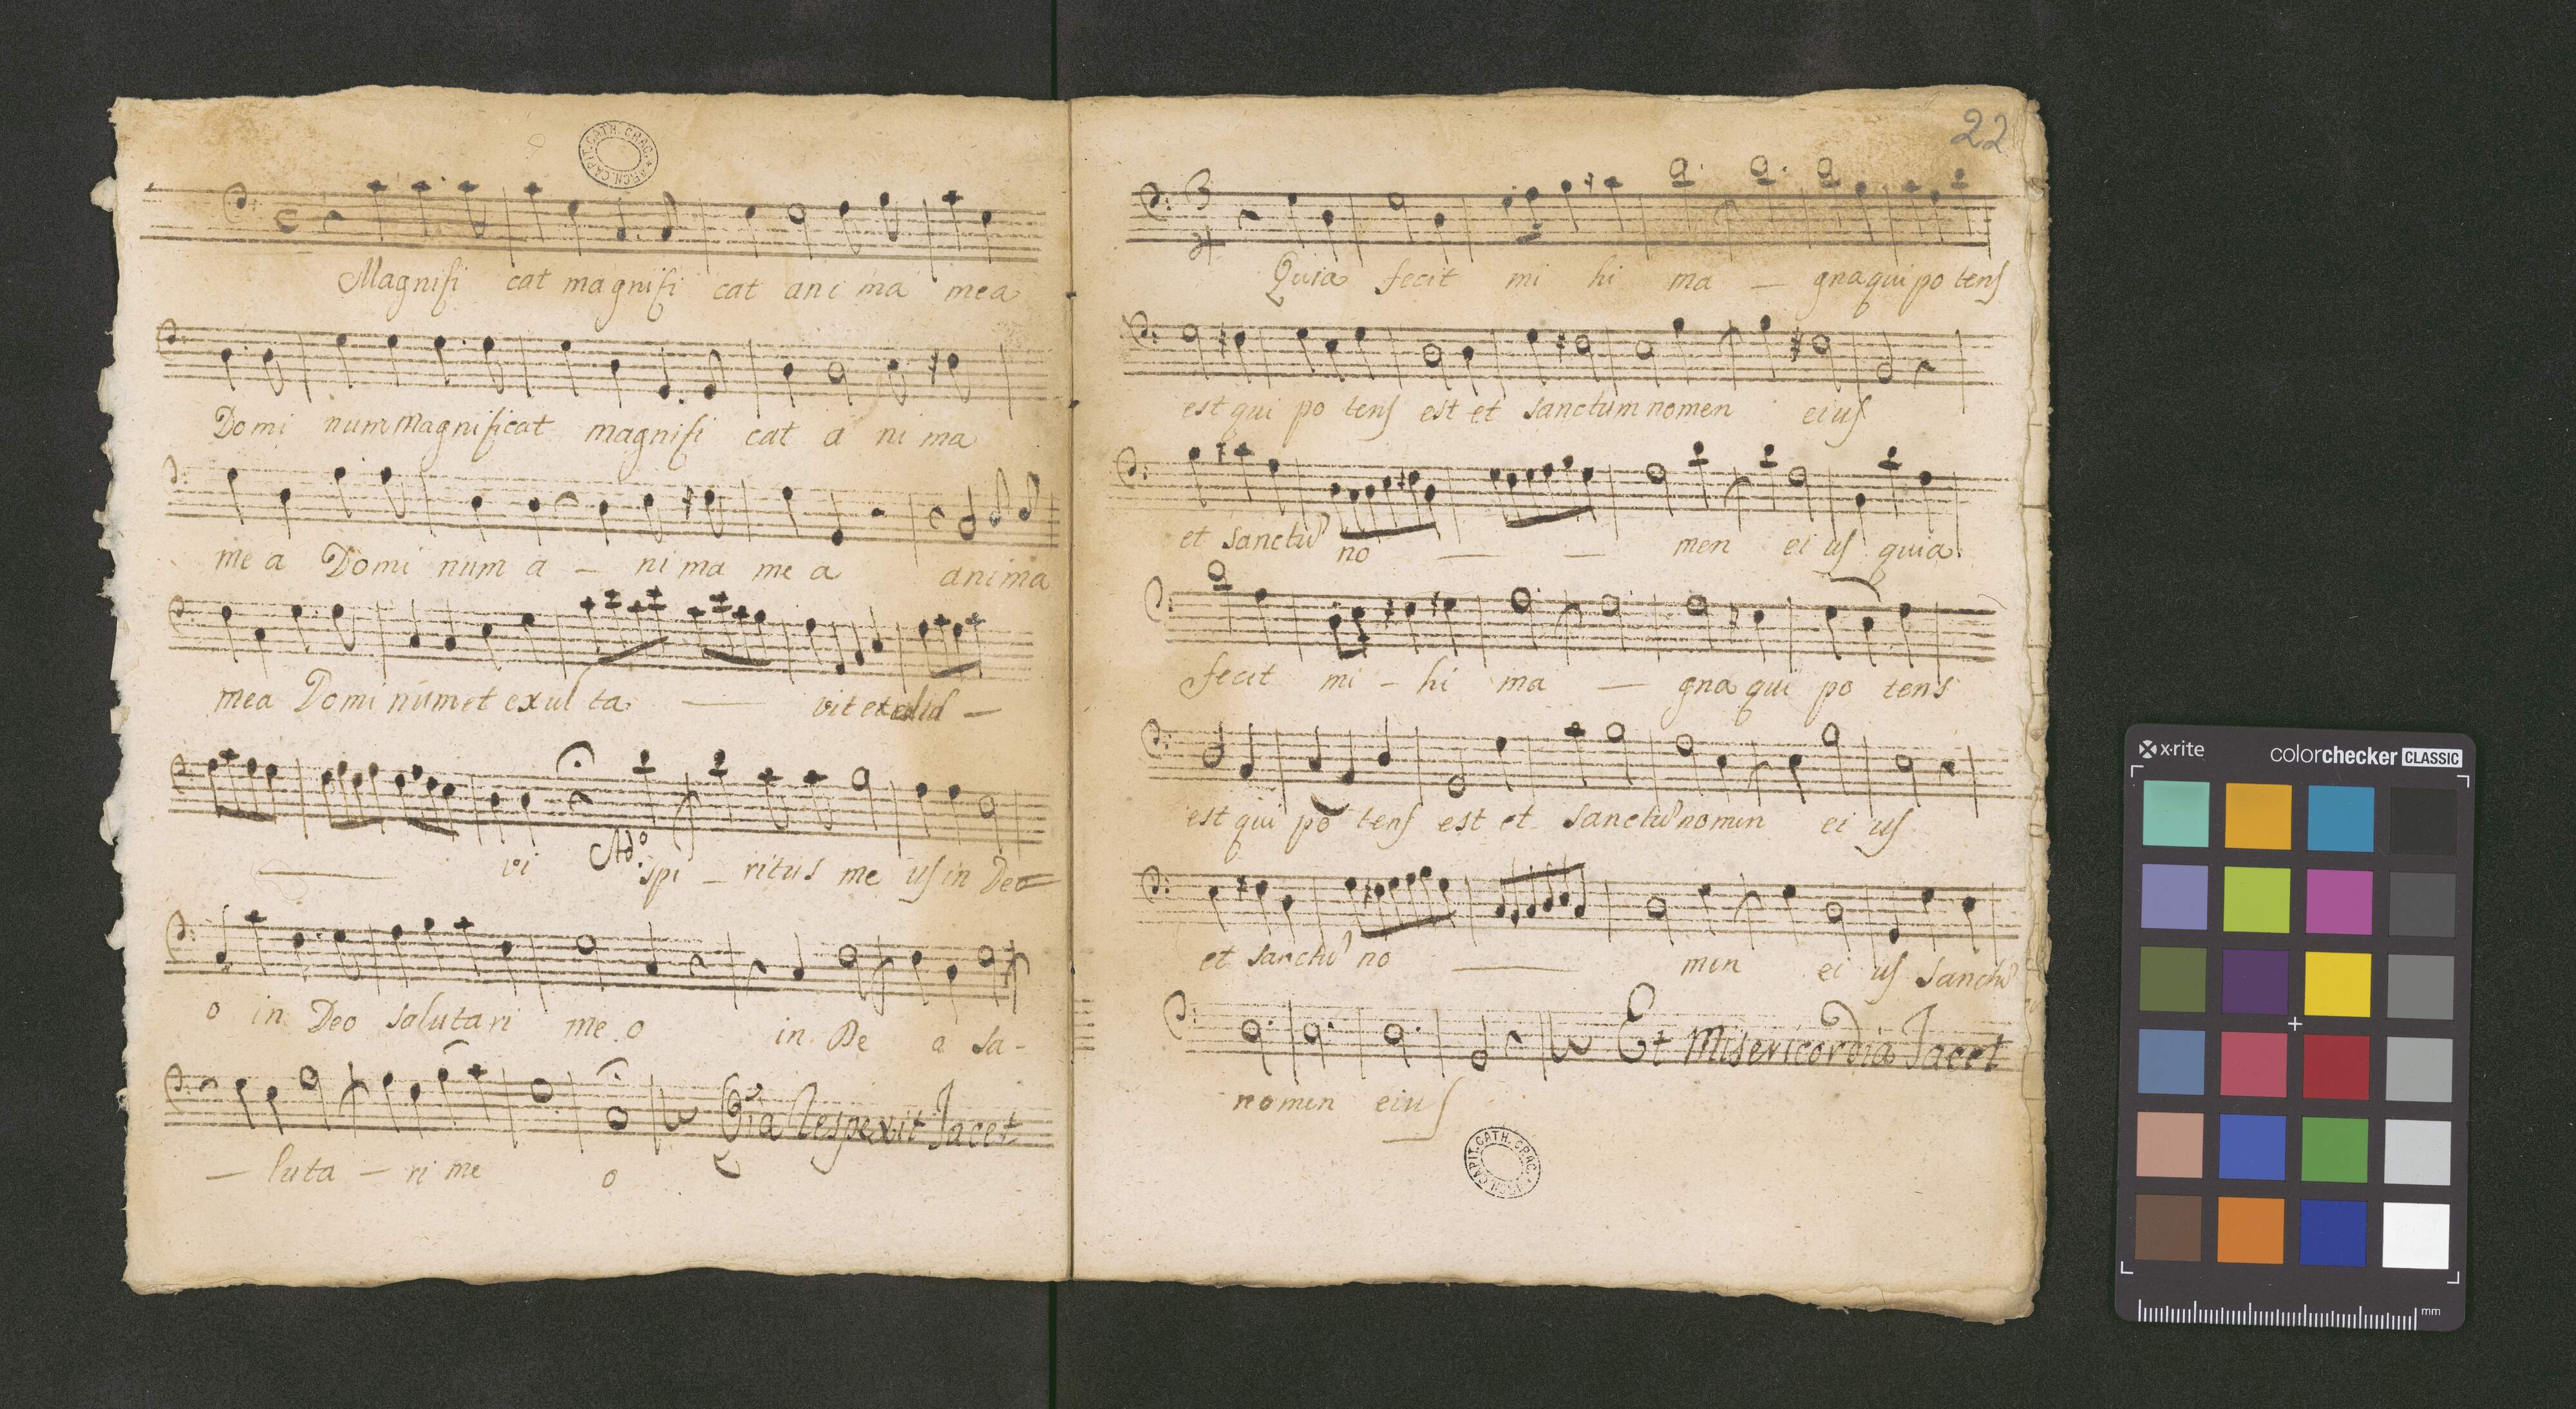 ARCH. CAPIT. CATH. CRAC.
Magnifi cat magnifi cat ani ma mea
Domi num Magnificat magnifi cat a ni ma
me a Domi num a – ni ma me a anima
mea Domi num et exul ta — vit et exul ta –
— vi Ado. spi – ritus me us in Deo
o in Deo salutari me o in De o sa-
— luta – ri me o
Quia Respexit Jacet
22
3
4
Quia fecit mi hi ma — gna qui po tens
est qui po tens est et sanctum nomen eius
et sanctu no — — men ei us quia
fecit mi – hi ma — gna qui po tens
est qui po tens est et sanctu nomen ei us
et sanctu no — men ei us sanctu
Et Misericordia Jacet
nomen eius
ARCH. CAPIT. CATH. CRAC.
x·rite colorchecker CLASSIC
mm